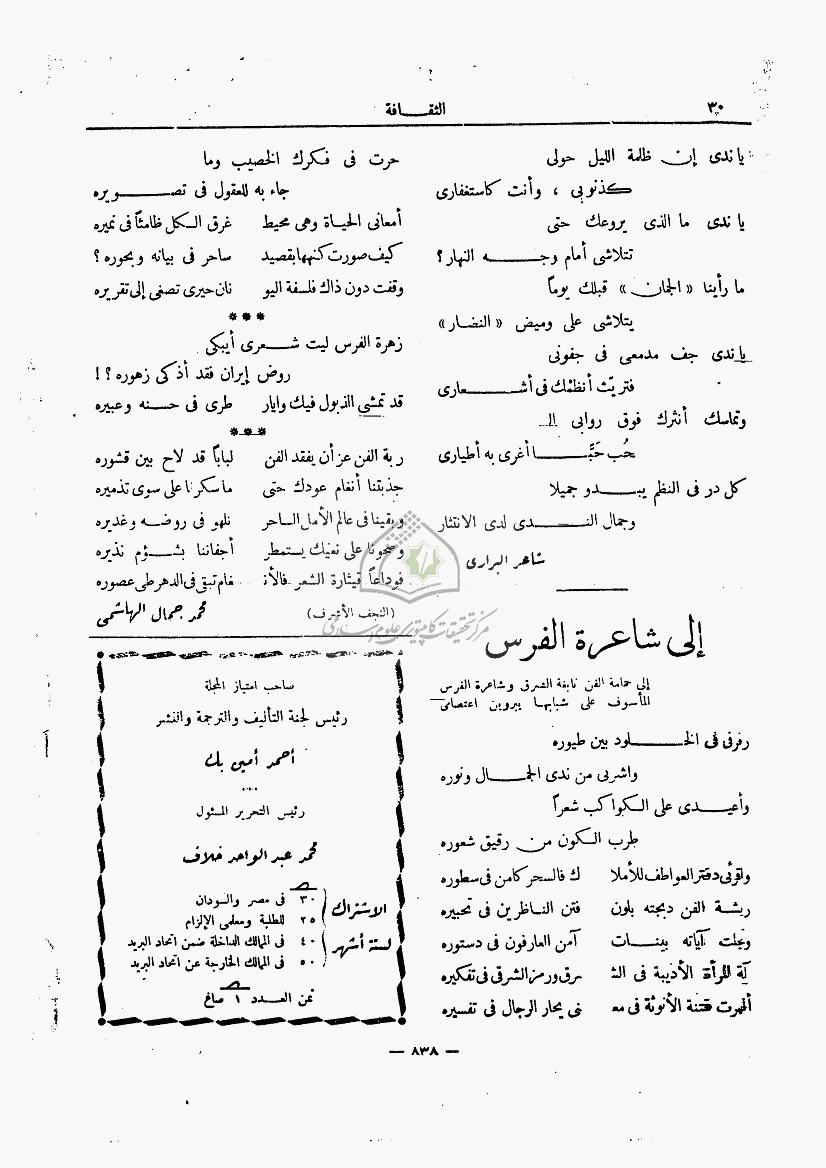 ٣٠
الثقافة
يا ندى إن ظلمة الليل حولى
كذنوبى ، وأنت كاستغفارى
يا ندى ما الذى يروعك حتى
تتلاشى أمام وجه النهار ؟
ما رأينا « الجمان » قبلك يوماً
يتلاشى على وميض « النضار »
يا ندى جف مدمعى فى جفونى
فتريث أنظمك فى أشعارى
وتماسك أنثرك فوق روابى الـ
حُب حَبًّا أغرى به أطيارى
كل در فى النظم يبدو جميلا
وجمال الندى لدى الانتثار
شاعر البرارى
إلى شاعرة الفرس
إلى حمامة الفن نابغة الشرق وشاعرة الفرس
المأسوف على شبابها بيروين اعتصامى
رفرفى فى الخلود بين طيوره
واشربى من ندى الجمال ونوره
وأعيدى على الكواكب شعراً
طرب الكون من رقيق شعوره
واقرئى دفتر العواطف للأملا ك فالسحر كامن فى سطوره
ريشة الفن دبجته بلون فتن الناظرين فى تحبيره
وتجلت آياته بينات آمن العارفون فى دستوره
آية للمرأة الأديبة فى الشـ ـرق ورمز الشرقى فى تفكيره
أظهرت فتنة الأنوثة فى معـ ـنى يحار الرجال فى تفسيره
حرت فى فكرك الخصيب وما
جاء به للعقول فى تصويره
أمعانى الحياة وهى محيط غرق الكل ظامئاً فى نميره
كيف صورت كنهها بقصيد ساحر فى بيانه وبحوره ؟
وقفت دون ذاك فلسفة اليو نان حيرى تصغى إلى تقريره
***
زهرة الفرس ليت شعرى أيبكى
روض إيران فقد أذكى زهوره ؟ !
قد تمشى الذبول فيك وايار طرى فى حسنه وعبيره
***
ربة الفن عز أن يفقد الفن لباباً قد لاح بين قشوره
جذبتنا أنغام عودك حتى ما سكرنا على سوى تذميره
وبقينا فى عالم الأمل الساحر نلهو فى روضه وغديره
وصحونا على نعيك يستمطر أجفاننا بشؤم نذيره
فوداعاً قيثارة الشعر فالأنـ ـغام تبقى فى الدهر طى عصوره
(النجف الأشرف) محمد جمال الهاشمى
صاحب امتياز المجلة
رئيس لجنة التأليف والترجمة والنشر
أحمد أمين بك
رئيس التحرير المسئول
محمد عبد الواحد خلاف
الاشتراك
لستة أشهر
٣٠ فى مصر والسودان
٢٥ للطلبة ومعلمى الإلزام
٤٠ فى الممالك الداخلة ضمن اتحاد البريد
٥٠ فى الممالك الخارجة عن اتحاد البريد
ثمن العدد ١ صاغ
— ٨٣٨ —
مركز تحقیقات کامپیوتری علوم اسلامی